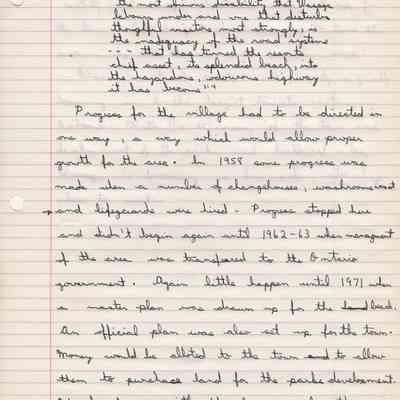 the most obvious disability that Village
labours under and one that disturbs
thoughtful visitors most strongly, is
the inadequacy of the road system
--- that has turned the resorts
chief asset, its splendid beach, into
the hazardous, odourous highway
it has become"4
Progress for the village had to be directed in
one way, a way which would allow proper
growth for the area. In 1958 some progress was
made when a number of changehouses, washrooms
and lifeguards were hired. Progress stopped here
and didn't begin again until 1962-63 when managment
of the area was transfered to the Ontario
government. Again little happen until 1971 when
a master plan was drawn up for the beach.
An official plan was also set up for the town.
Money would be alloted to the town to allow
them to purchase land for the parks development.